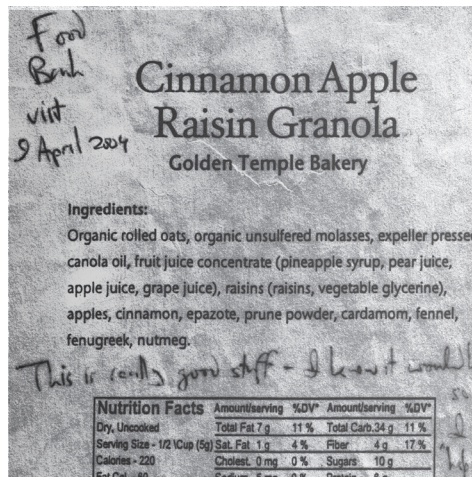 Food
Bank
visit
9 April 2004
Cinnamon Apple
Raisin Granola
Golden Temple Bakery
Ingredients:
Organic rolled oats, organic unsulfered molasses, expeller presse
canola oil, fruit juice concentrate (pineapple syrup, pear juice,
apple juice, grape juice), raisins (raisins, vegetable glycerine),
apples, cinnamon, epazote, prune powder, cardamom, fennel,
fenugreek, nutmeg.
This is really good stuff - I know it would
Nutrition Facts Amount/serving %DV* Amount/serving %DV*
Dry, Uncooked Total Fat 7 g 11 % Total Carb.34 g 11 %
Serving Size - 1/2 \Cup (5g) Sat. Fat 1 g 4 % Fiber 4 g 17 %
Calories - 220 Cholest. 0 mg 0 % Sugars 10 g
Fat Cal. - 60 Sodium 5 mg 0 % Protein